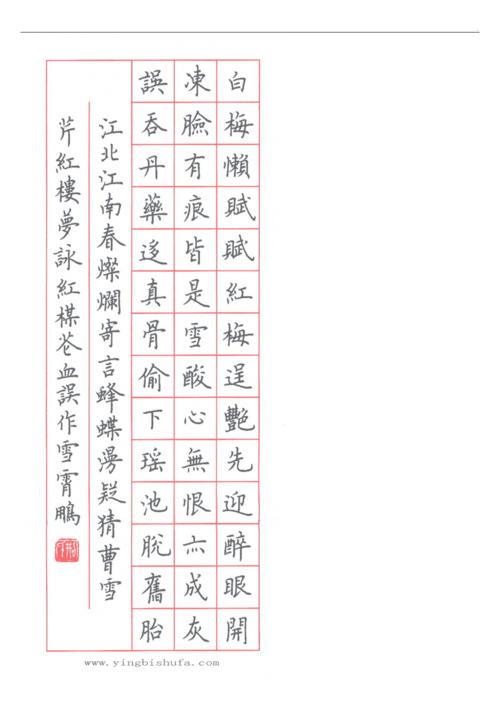 白梅懶賦賦紅梅逞艷先迎醉眼開
凍臉有痕皆是雪酸心無恨亦成灰
誤吞丹藥迻真骨偷下瑶池脫舊胎
江北江南春燦爛寄言蜂蝶漫疑猜曹雪
芹紅樓夢詠紅楳花血誤作雪霄鵬
www.yingbishufa.com